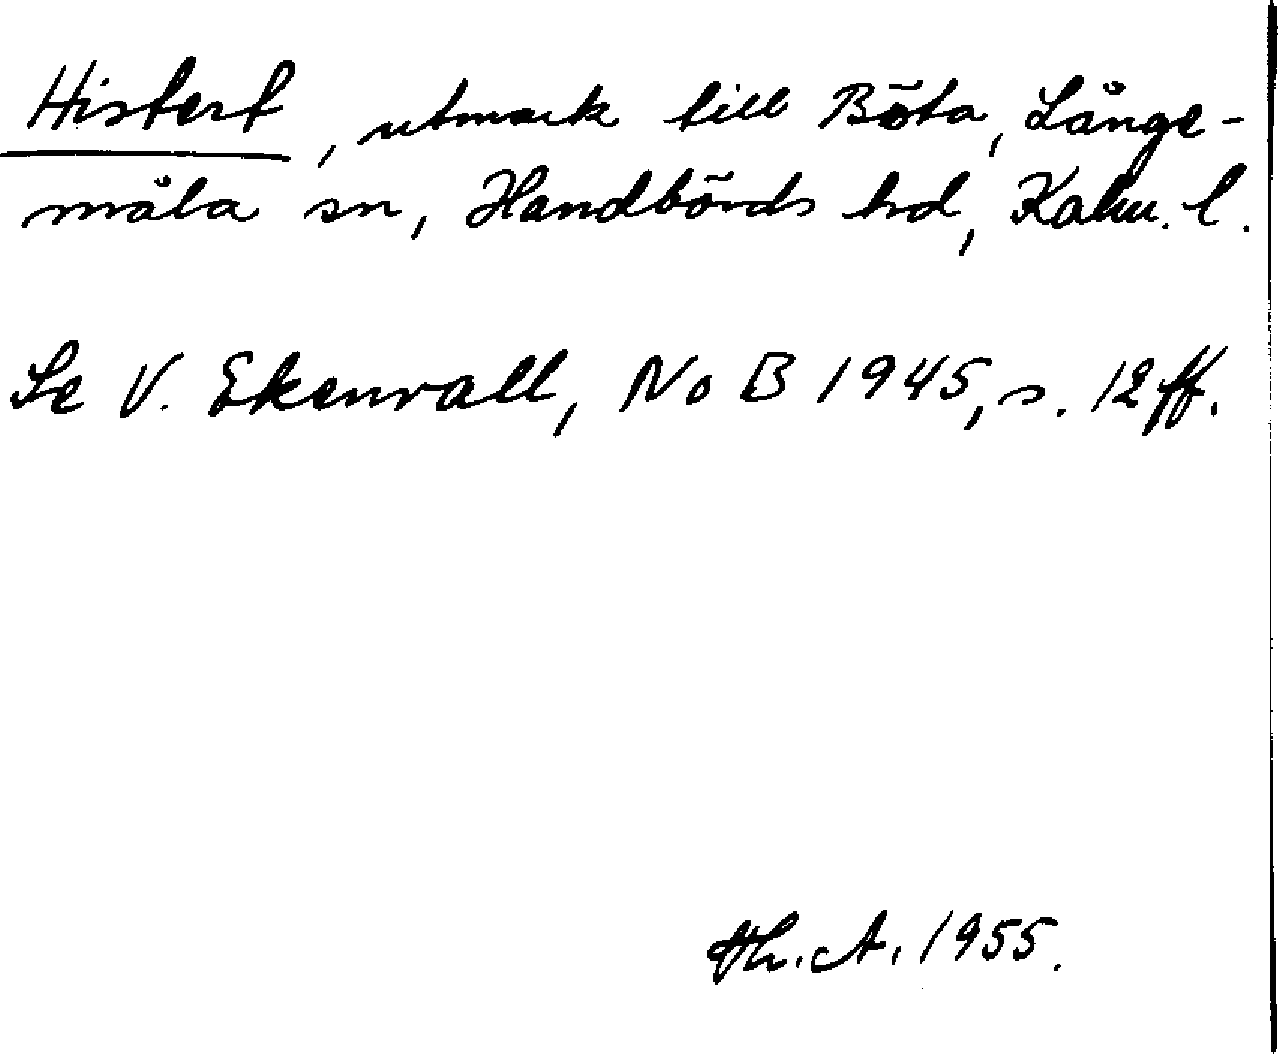 Histert, utmark till Böta, Långe-
måla sn, Handbörds hd, Kalm. l.
Se V. Ekenvall, NoB 1945, s. 12 ff.
Th. A. 1955.